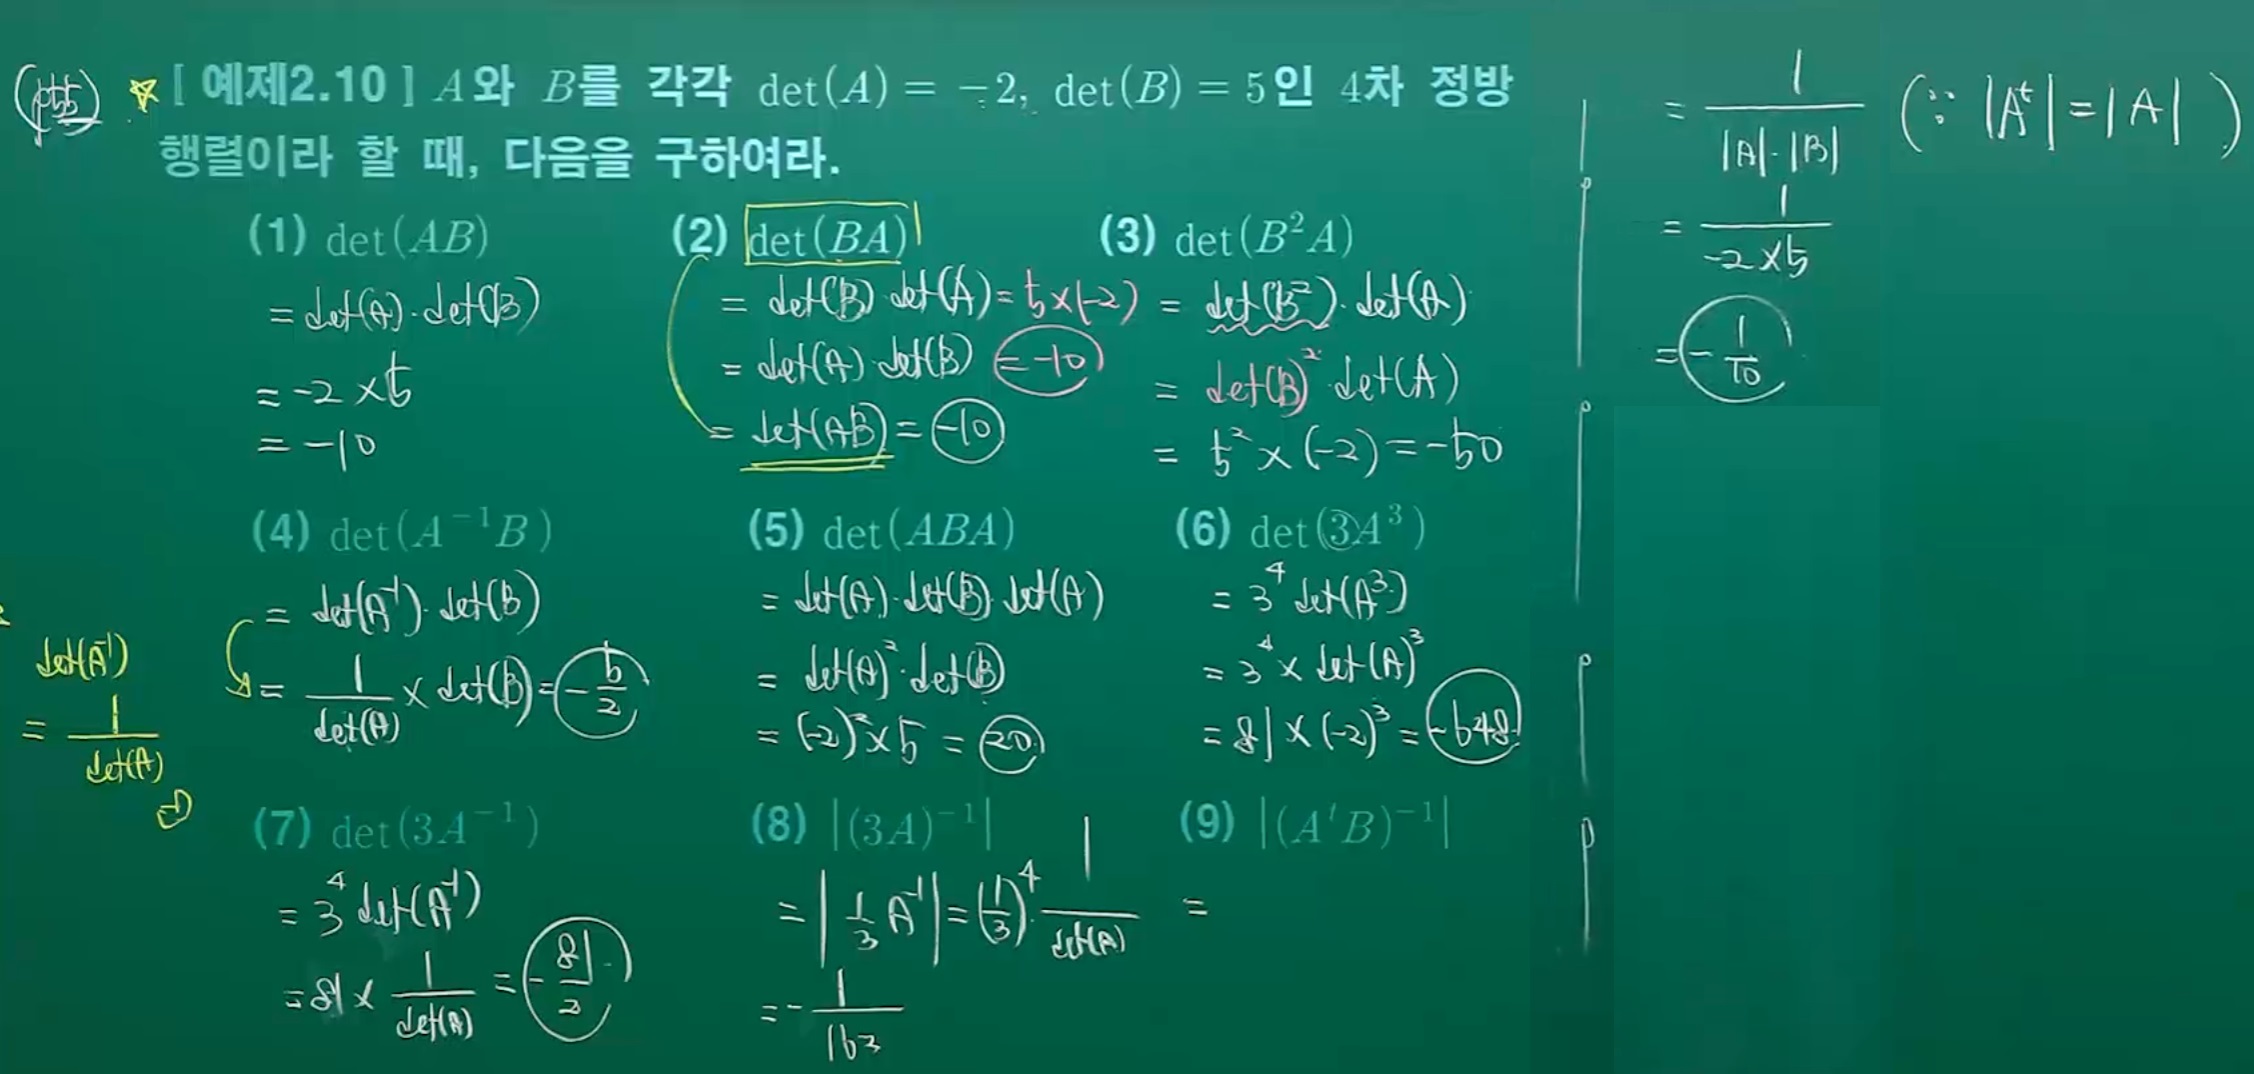 (p55) ☆ [ 예제2.10 ] A와 B를 각각 det(A) = -2, det(B) = 5인 4차 정방
행렬이라 할 때, 다음을 구하여라.
(1) det(AB)
= det(A)·det(B)
= -2 × 5
= -10
(2) det(BA)
= det(B) det(A) = 5×(-2)
= det(A) det(B) = -10
= det(AB) = -10
(3) det(B²A)
= det(B²)·det(A)
= det(B)²·det(A)
= 5² × (-2) = -50
(4) det(A⁻¹B)
= det(A⁻¹)·det(B)
= 1/det(A) × det(B) = -5/2
det(A⁻¹)
= 1/det(A)
(5) det(ABA)
= det(A)·det(B)·det(A)
= det(A)²·det(B)
= (-2)²×5 = 20
(6) det(3A³)
= 3⁴ det(A³)
= 3⁴ × det(A)³
= 81 × (-2)³ = -648
(7) det(3A⁻¹)
= 3⁴ det(A⁻¹)
= 81 × 1/det(A) = -81/2
(8) |(3A)⁻¹|
= |1/3 A⁻¹| = (1/3)⁴· 1/det(A)
= - 1/162
(9) |(AᵗB)⁻¹|
=
= 1/(|A|·|B|) (∵ |Aᵗ| = |A|)
= 1/(-2×5)
= -1/10